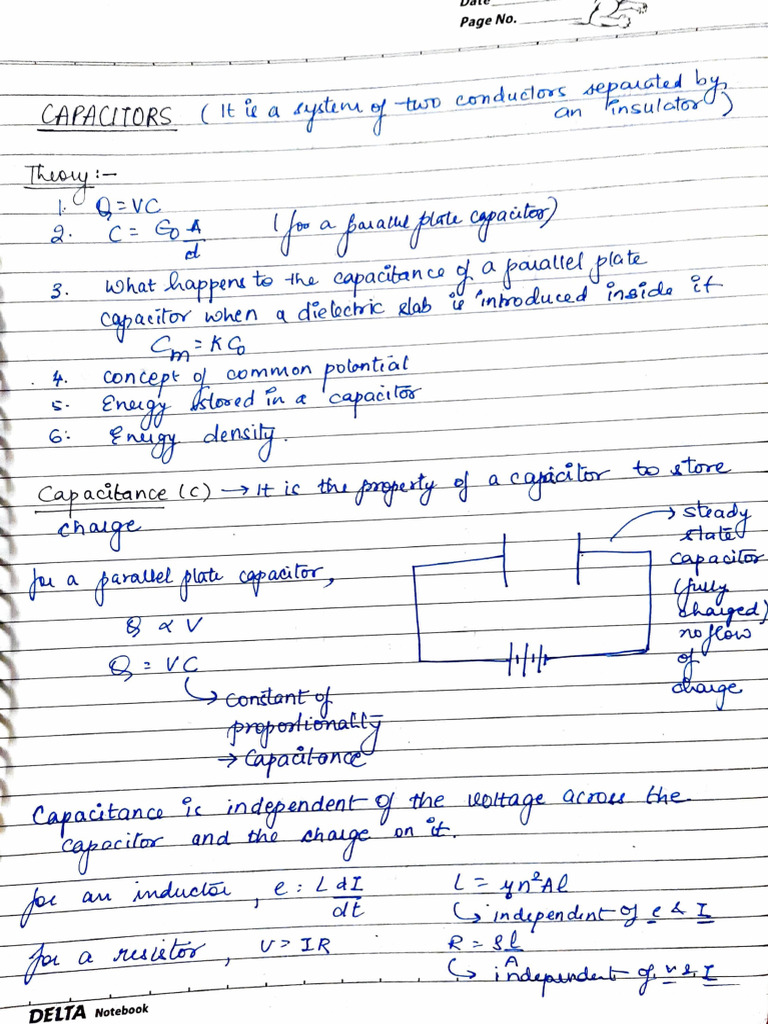 Date
Page No.
CAPACITORS (It is a system of two conductors separated by
an insulator)
Theory :-
1. Q = VC
2. C = ε₀ A/d (for a parallel plate capacitor)
3. What happens to the capacitance of a parallel plate
capacitor when a dielectric slab is introduced inside it
Cm = KC₀
4. concept of common potential
5. Energy stored in a capacitor
6: Energy density.
Capacitance (C) → It is the property of a capacitor to store
charge
for a parallel plate capacitor,
Q ∝ V
Q = VC
↳ constant of
proportionality
→ Capacitance
→ steady
state
capacitor
(fully
charged)
no flow
of
charge
Capacitance is independent of the voltage across the
capacitor and the charge on it.
for an inductor, e = L dI/dt L = μn²Al
↳ independent of e & I
for a resistor, V = IR R = ρl/A
↳ independent of v & I
DELTA Notebook